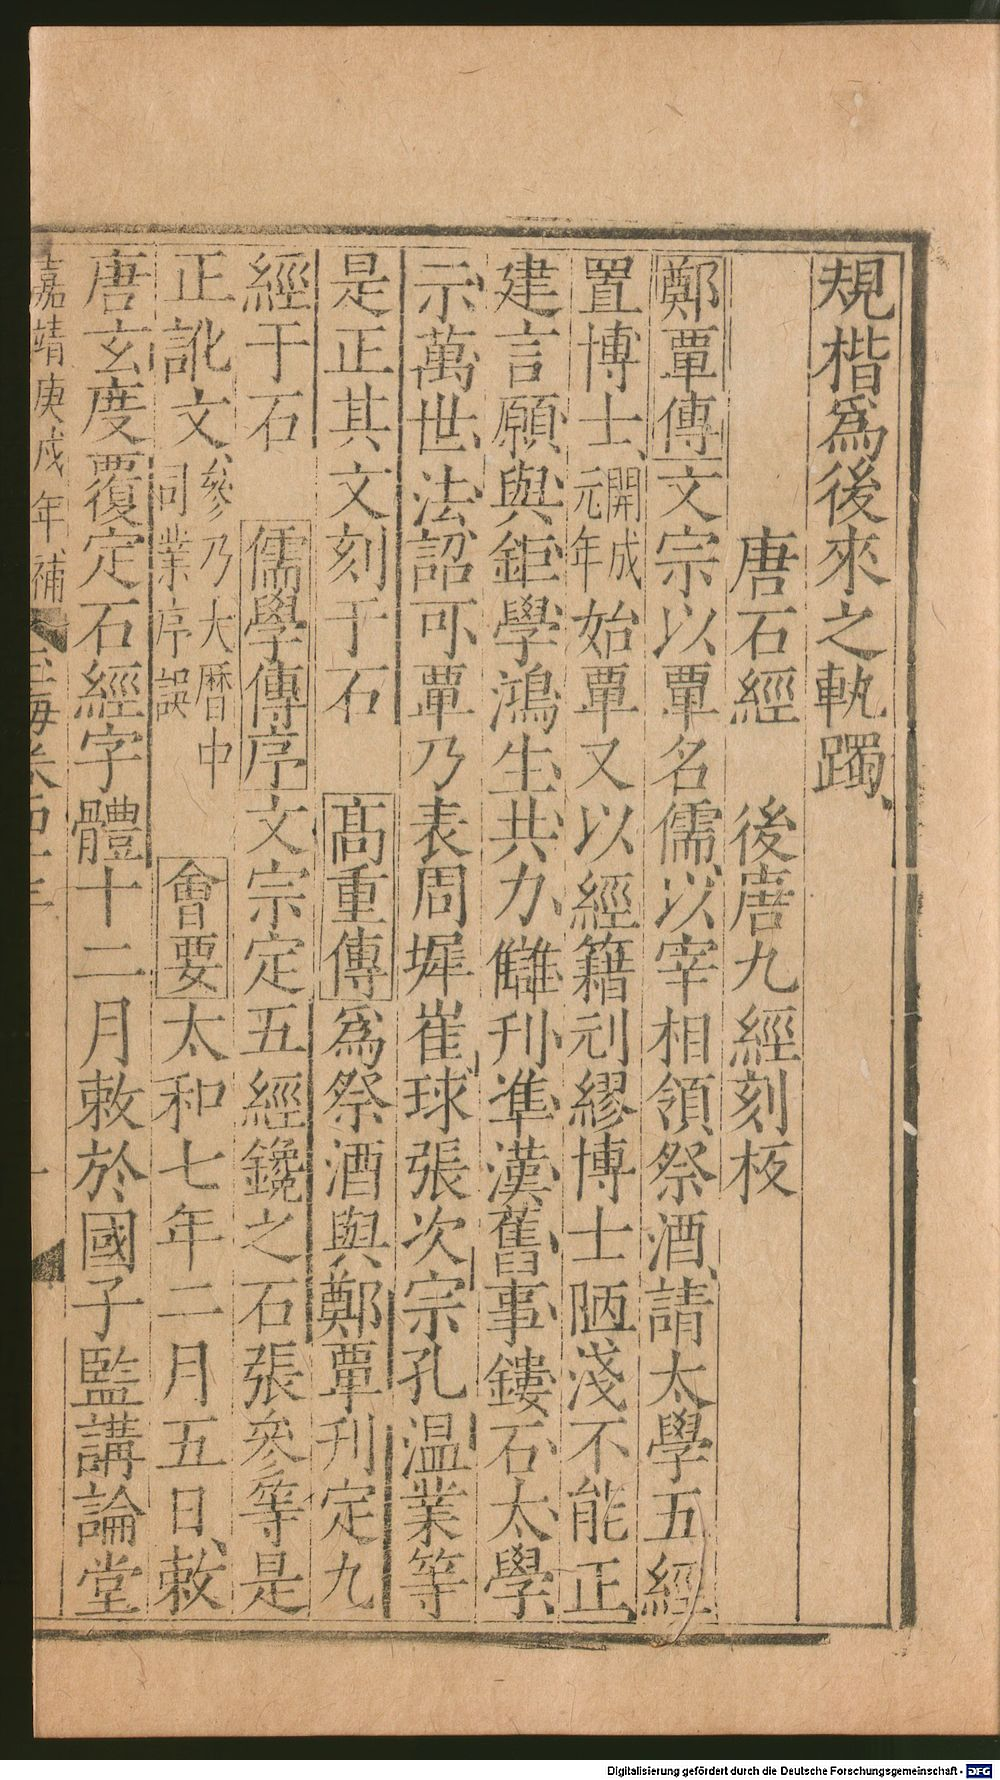 規楷爲後來之軌躅
唐石經 後唐九經刻板
鄭覃傳文宗以覃名儒以宰相領祭酒請太學五經
置博士開成元年始覃又以經籍刓繆博士陋淺不能正
建言願與鉅學鴻生共力讎刋準漢舊事鏤石太學
示萬世法詔可覃乃表周墀崔球張次宗孔温業等
是正其文刻于石 高重傳爲祭酒與鄭覃刋定九
經于石 儒學傳序文宗定五經鑱之石張參等是
正訛文參乃大曆中同業序誤 會要太和七年二月五日敕
唐玄度覆定石經字體十二月敕於國子監講論堂
嘉靖庚戌年補
Digitalisierung gefördert durch die Deutsche Forschungsgemeinschaft - DFG